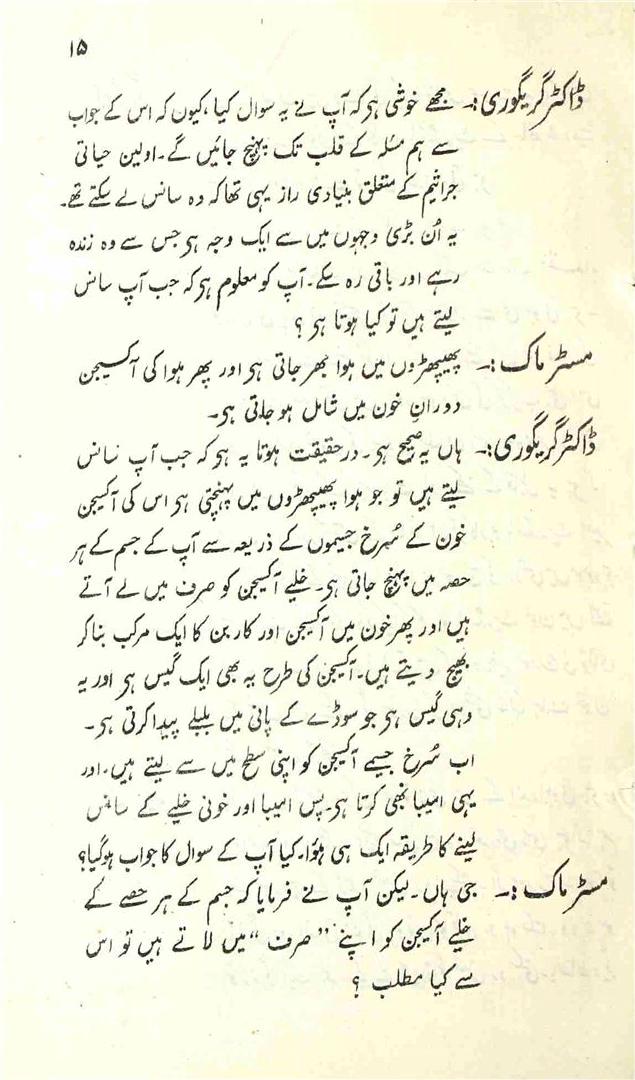 ۱۵
ڈاکٹر گریگوری:۔ مجھے خوشی ہر کہ آپ نے یہ سوال کیا، کیوں کہ اس کے جواب
سے ہم مسئلہ کے قلب تک پہنچ جائیں گے۔ اولین حیاتی
جراثیم کے متعلق بنیادی راز یہی تھا کہ وہ سانس لے سکتے تھے۔
یہ اُن بڑی وجہوں میں سے ایک وجہ ہر جس سے وہ زندہ
رہے اور باقی رہ سکے۔ آپ کو معلوم ہر کہ جب آپ سانس
لیتے ہیں تو کیا ہوتا ہر؟
مسٹر ماک:۔ پھیپھڑوں میں ہوا بھر جاتی ہر اور پھر ہوا کی آکسیجن
دورانِ خون میں شامل ہو جاتی ہر۔
ڈاکٹر گریگوری:۔ ہاں یہ صحیح ہر۔ در حقیقت ہوتا یہ ہر کہ جب آپ سانس
لیتے ہیں تو جو ہوا پھیپھڑوں میں پہنچتی ہر اس کی آکسیجن
خون کے سُرخ جسیموں کے ذریعہ سے آپ کے جسم کے ہر
حصہ میں پہنچ جاتی ہر۔ خلیے آکسیجن کو صرف میں لے آتے
ہیں اور پھر خون میں آکسیجن اور کاربن کا ایک مرکب بنا کر
بھیج دیتے ہیں۔ آکسیجن کی طرح یہ بھی ایک گیس ہر اور یہ
وہی گیس ہر جو سوڈے کے پانی میں بلبلے پیدا کرتی ہر۔
اب سُرخ جسیمے آکسیجن کو اپنی سطح میں سے لیتے ہیں۔ اور
یہی امیبا بھی کرتا ہر۔ پس امیبا اور خونی خلیے کے سانس
لینے کا طریقہ ایک ہی ہؤا۔ کیا آپ کے سوال کا جواب ہوگیا؟
مسٹر ماک:۔ جی ہاں۔ لیکن آپ نے فرمایا کہ جسم کے ہر حصے کے
خلیے آکسیجن کو اپنے "صرف" میں لاتے ہیں تو اس
سے کیا مطلب؟